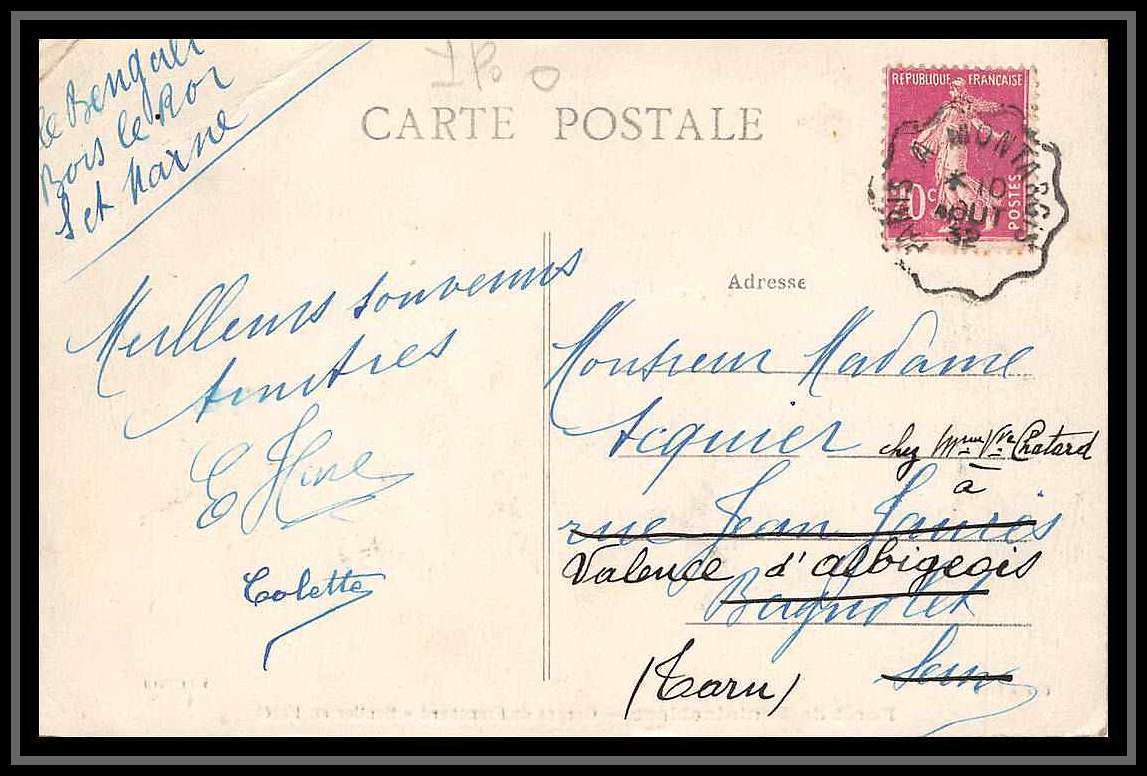 le Bengali
Bois le Roi
S et Marne
CARTE POSTALE
REPUBLIQUE FRANÇAISE
POSTES
0c
PARIS A MONTARGIS
10
AOUT
32
Adresse
Meilleurs souvenirs
Amitiés
E Hine
Colette
Monsieur Madame
Acquier chez Mme Vve Chatard
à
rue Jean Jaurès
Valence d'albigeois
Bagnolet
(Tarn)
Seine